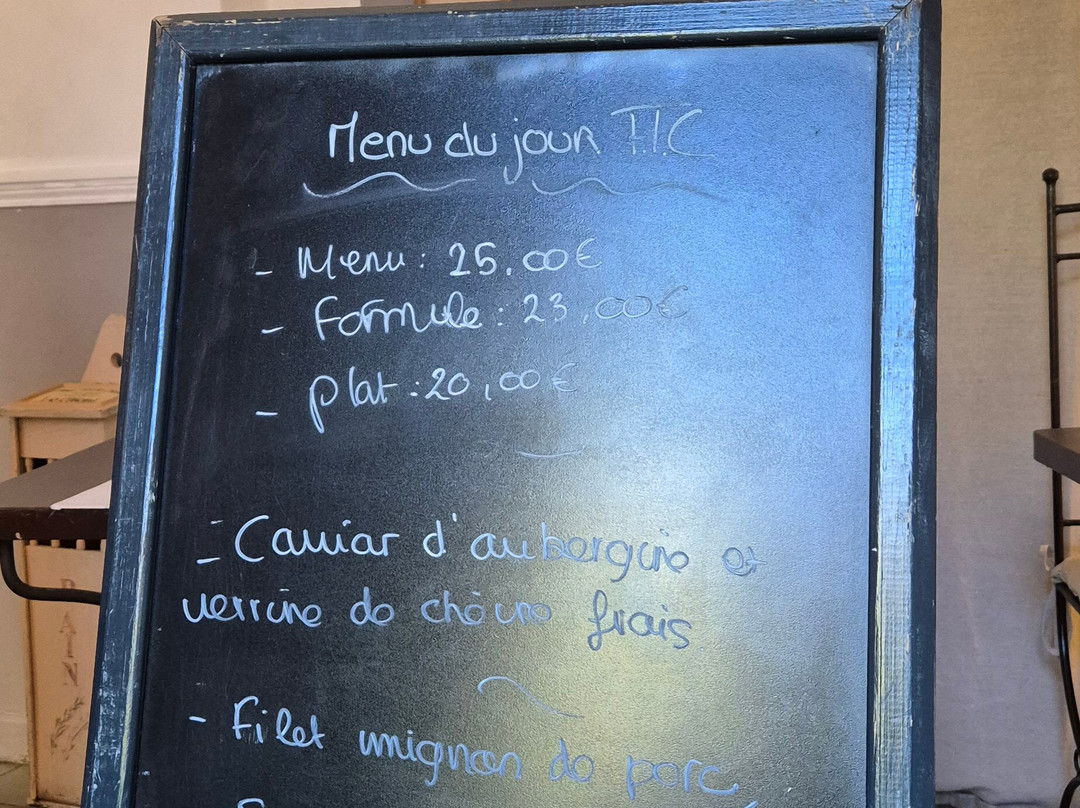 Menu du jour T.T.C
- Menu : 25,00€
- Formule : 23,00€
- plat : 20,00€
- Caviar d'aubergine et
verrine de chèvre frais
- Filet mignon de porc
PAIN